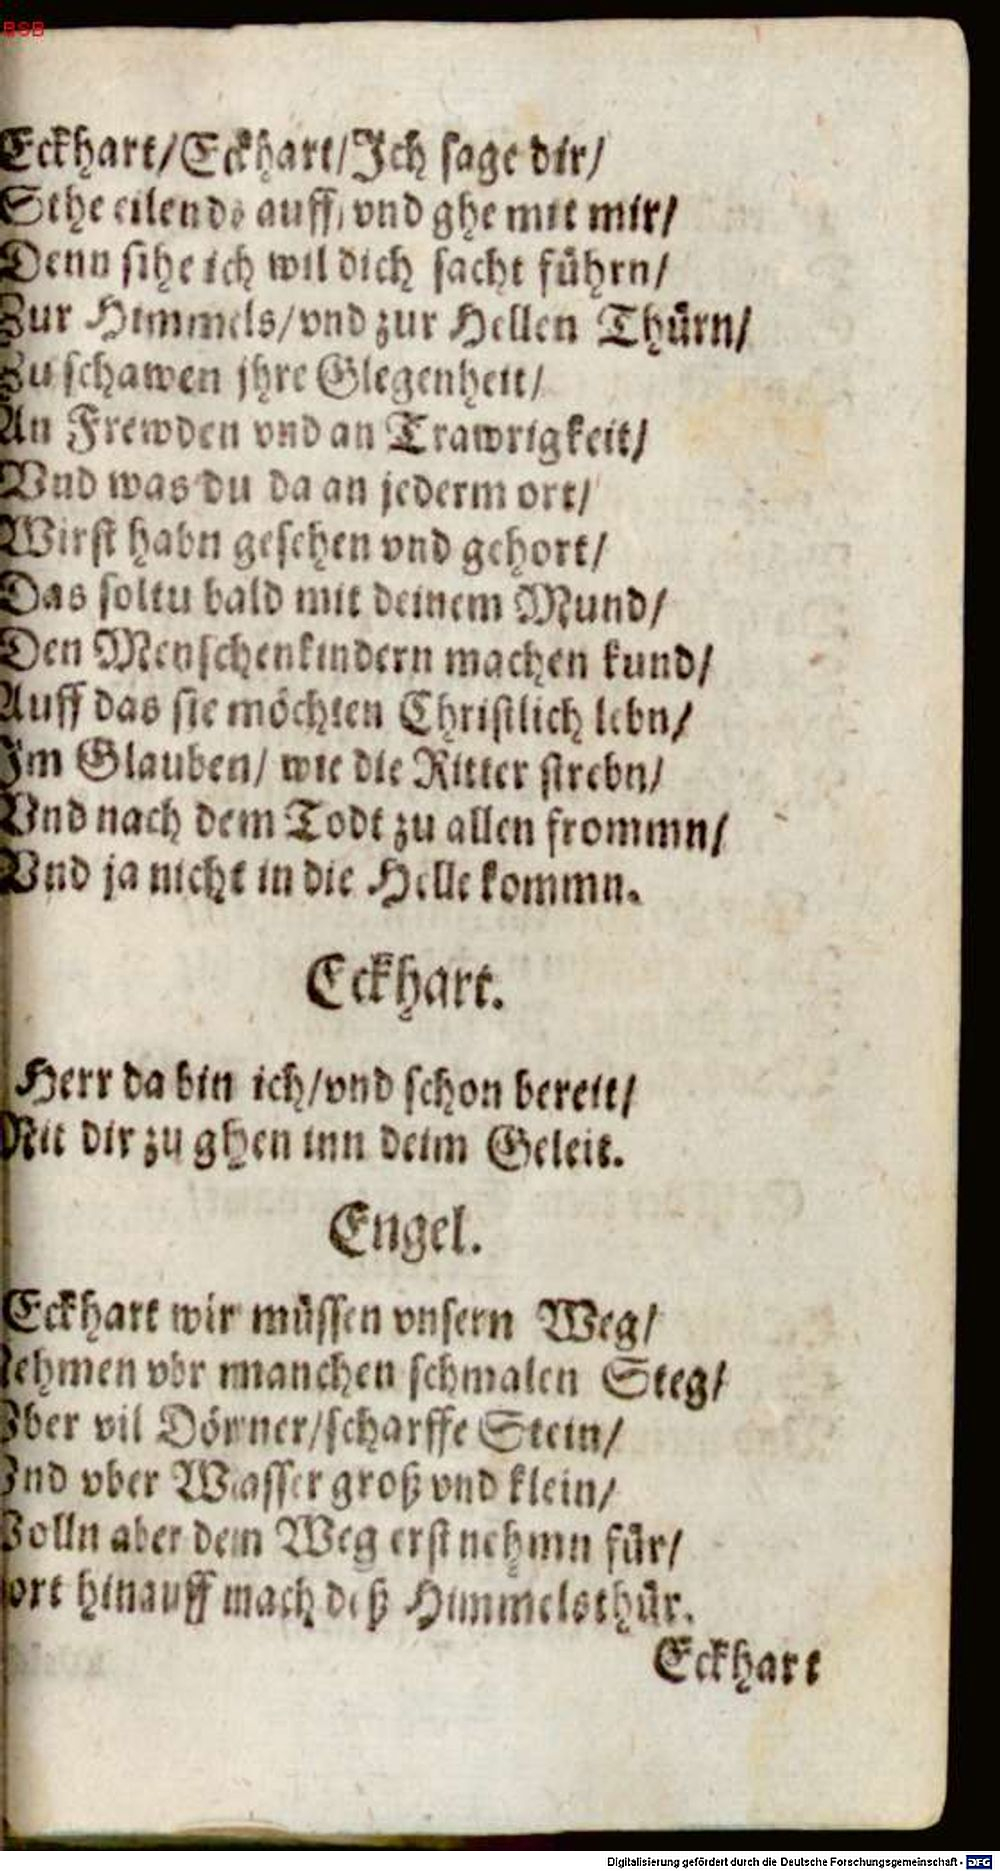 BSB
Eckhart/Eckhart/Ich sage dir/
Sthe eilends auff/ vnd ghe mit mir/
Denn sihe ich wil dich sacht führn/
Zur Himmels/vnd zur Hellen Thürn/
Zu schawen jhre Glegenheit/
An Frewden vnd an Trawrigkeit/
Vnd was du da an jederm ort/
Wirst habn gesehen vnd gehort/
Das soltu bald mit deinem Mund/
Den Menschenkindern machen kund/
Auff das sie möchten Christlich lebn/
Im Glauben/ wie die Ritter strebn/
Vnd nach dem Todt zu allen frommn/
Vnd ja nicht in die Helle kommn.
Eckhart.
Herr da bin ich/vnd schon bereit/
Mit dir zu ghen inn deim Geleit.
Engel.
Eckhart wir müssen vnsern Weg/
ehmen vbr manchen schmalen Steg/
ber vil Dörner/scharffe Stein/
nd vber Wasser groß vnd klein/
olln aber dem Weg erst nehmn für/
ort hinauff nach deß Himmelsthür.
Eckhart
Digitalisierung gefördert durch die Deutsche Forschungsgemeinschaft - DFG